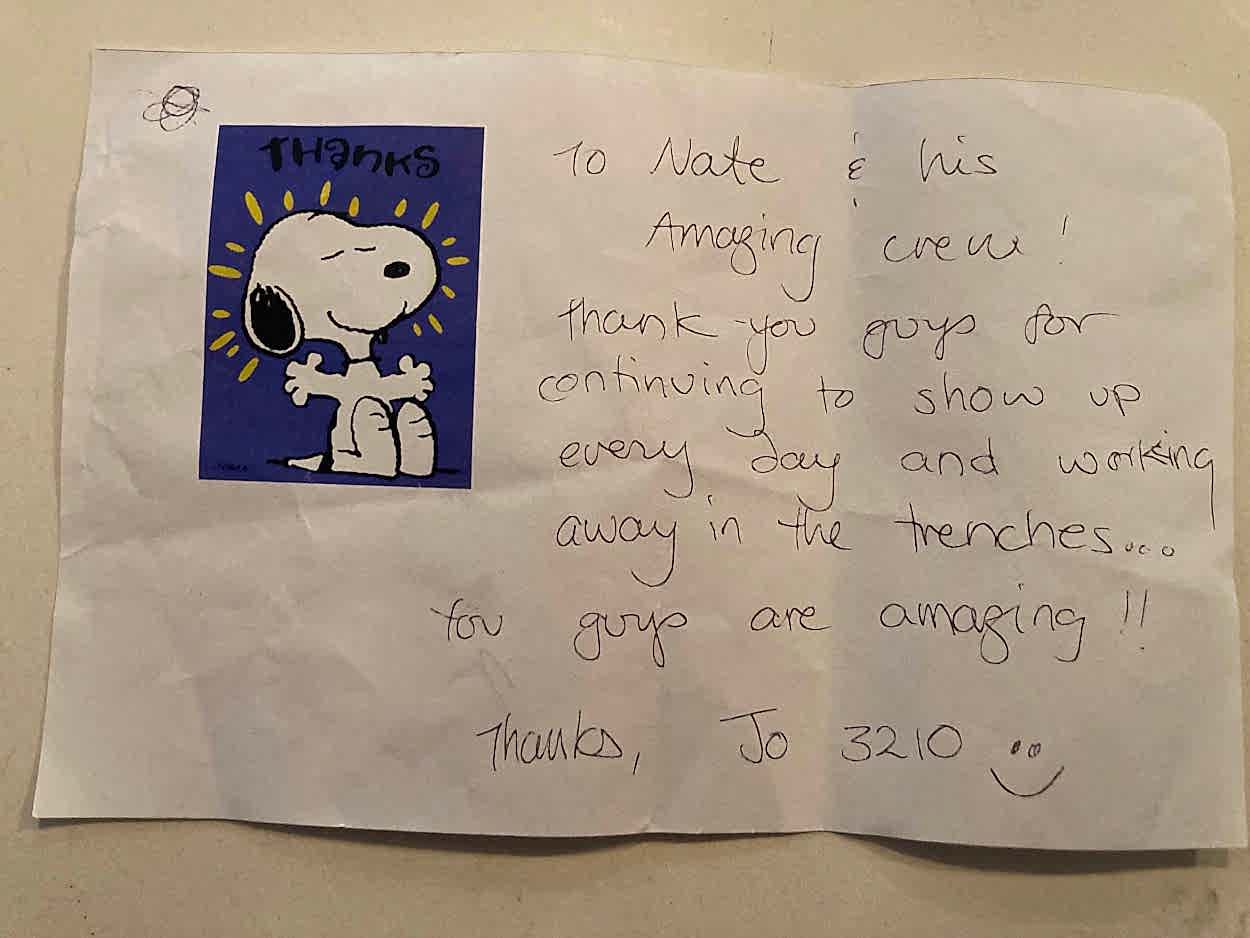 THanKS
To Nate & his
Amazing crew!
Thank-you guys for
continuing to show up
every day and working
away in the trenches...
You guys are amazing!!
Thanks, Jo 3210